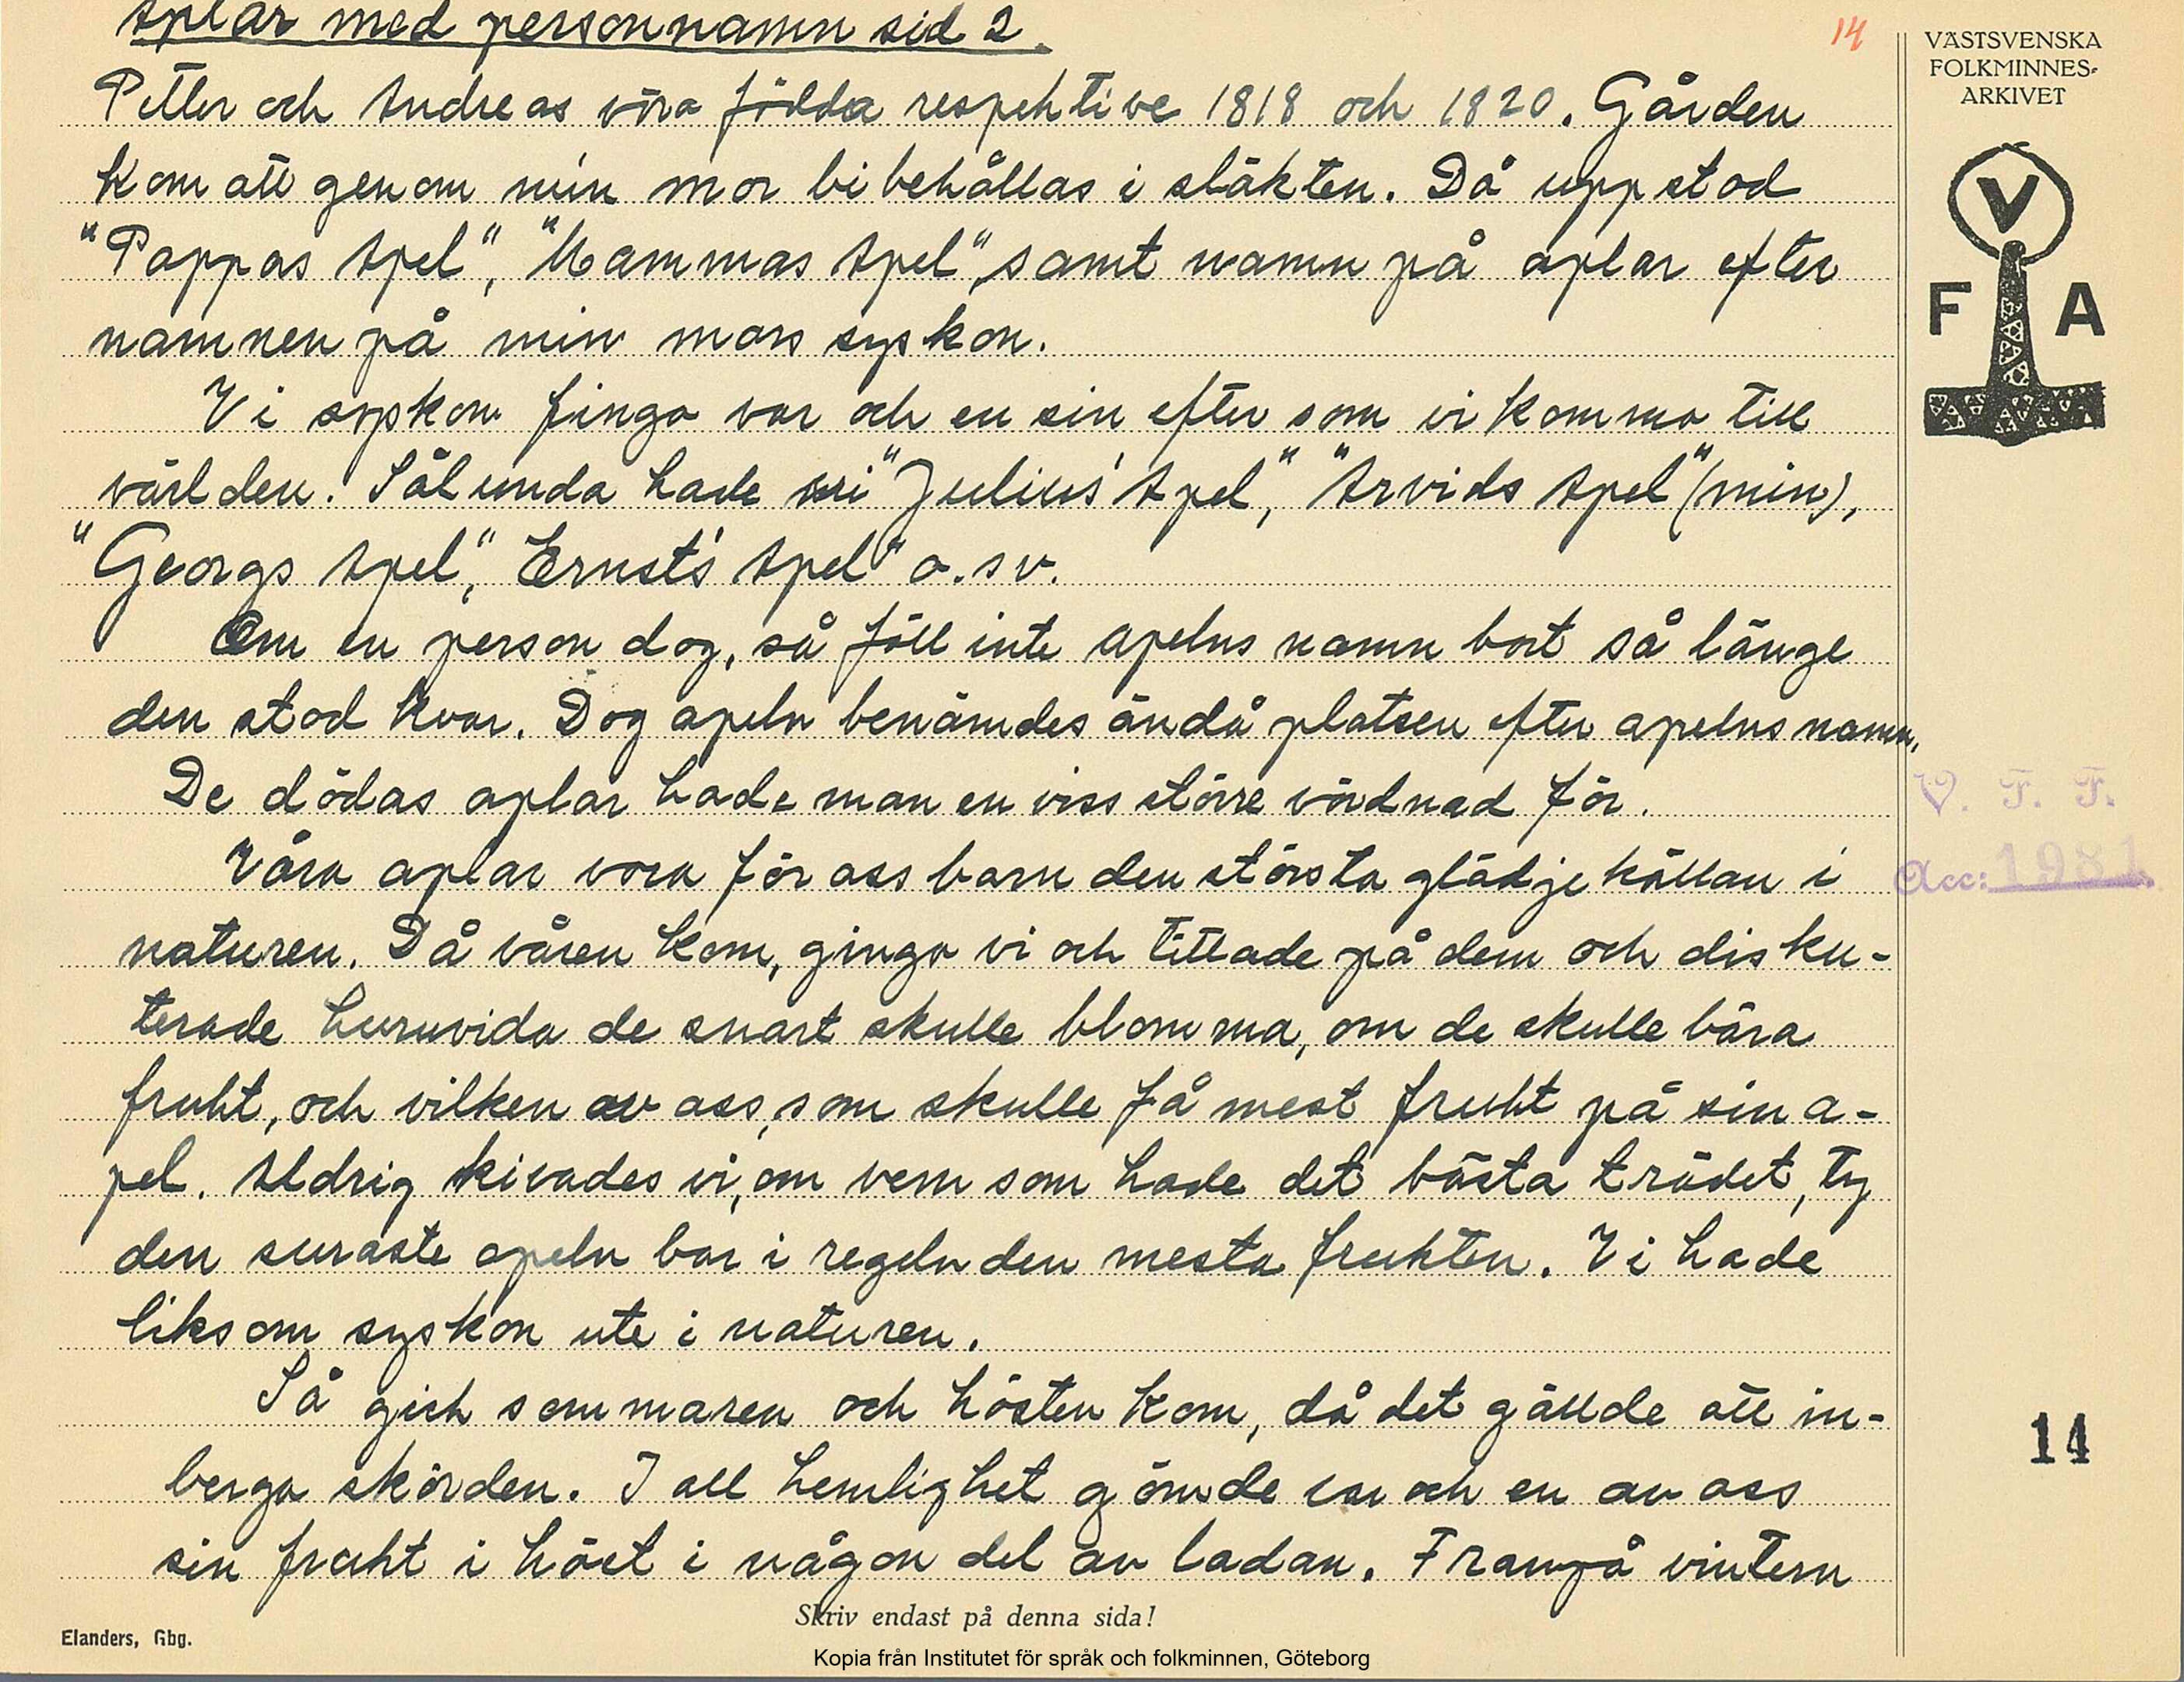 Aplar med personnamn sid 2.
14
VÄSTSVENSKA
FOLKMINNES-
ARKIVET
V
F A
Petter och Andreas vöro födda respektive 1818 och 1820. Gården
kom att genom min mor bibehållas i släkten. Då uppstod
"Pappas Apel", "Mammas Apel", samt namn på aplar efter
namnen på min mors syskon.
Vi syskon fingo var och en sin efter som vi kommo till
världen. Sålunda hade vi "Julius' Apel", "Arvids Apel" (min),
"Georgs Apel", Ernst's Apel" o. s v.
Om en person dog, så föll inte apelns namn bort så länge
den stod kvar. Dog apeln benämdes ändå platsen efter apelns namn.
De dödas aplar hade man en viss större vördnad för.
V. F. F.
Våra aplar voro för oss barn den största glädjekällan i
Acc: 1981.
naturen. Då våren kom, gingo vi och tittade på dem och disku-
terade huruvida de snart skulle blomma, om de skulle bära
frukt, och vilken av oss, som skulle få mest frukt på sin a-
pel. Aldrig kivades vi, om vem som hade det bästa trädet, ty
den suraste apeln bar i regeln den mesta frukten. Vi hade
liksom syskon ute i naturen.
Så gick sommaren och hösten kom, då det gällde att in-
14
berga skörden. I all hemlighet gömde var och en av oss
sin frukt i höet i någon del av ladan. Frampå vintern
Skriv endast på denna sida!
Elanders, Gbg.
Kopia från Institutet för språk och folkminnen, Göteborg